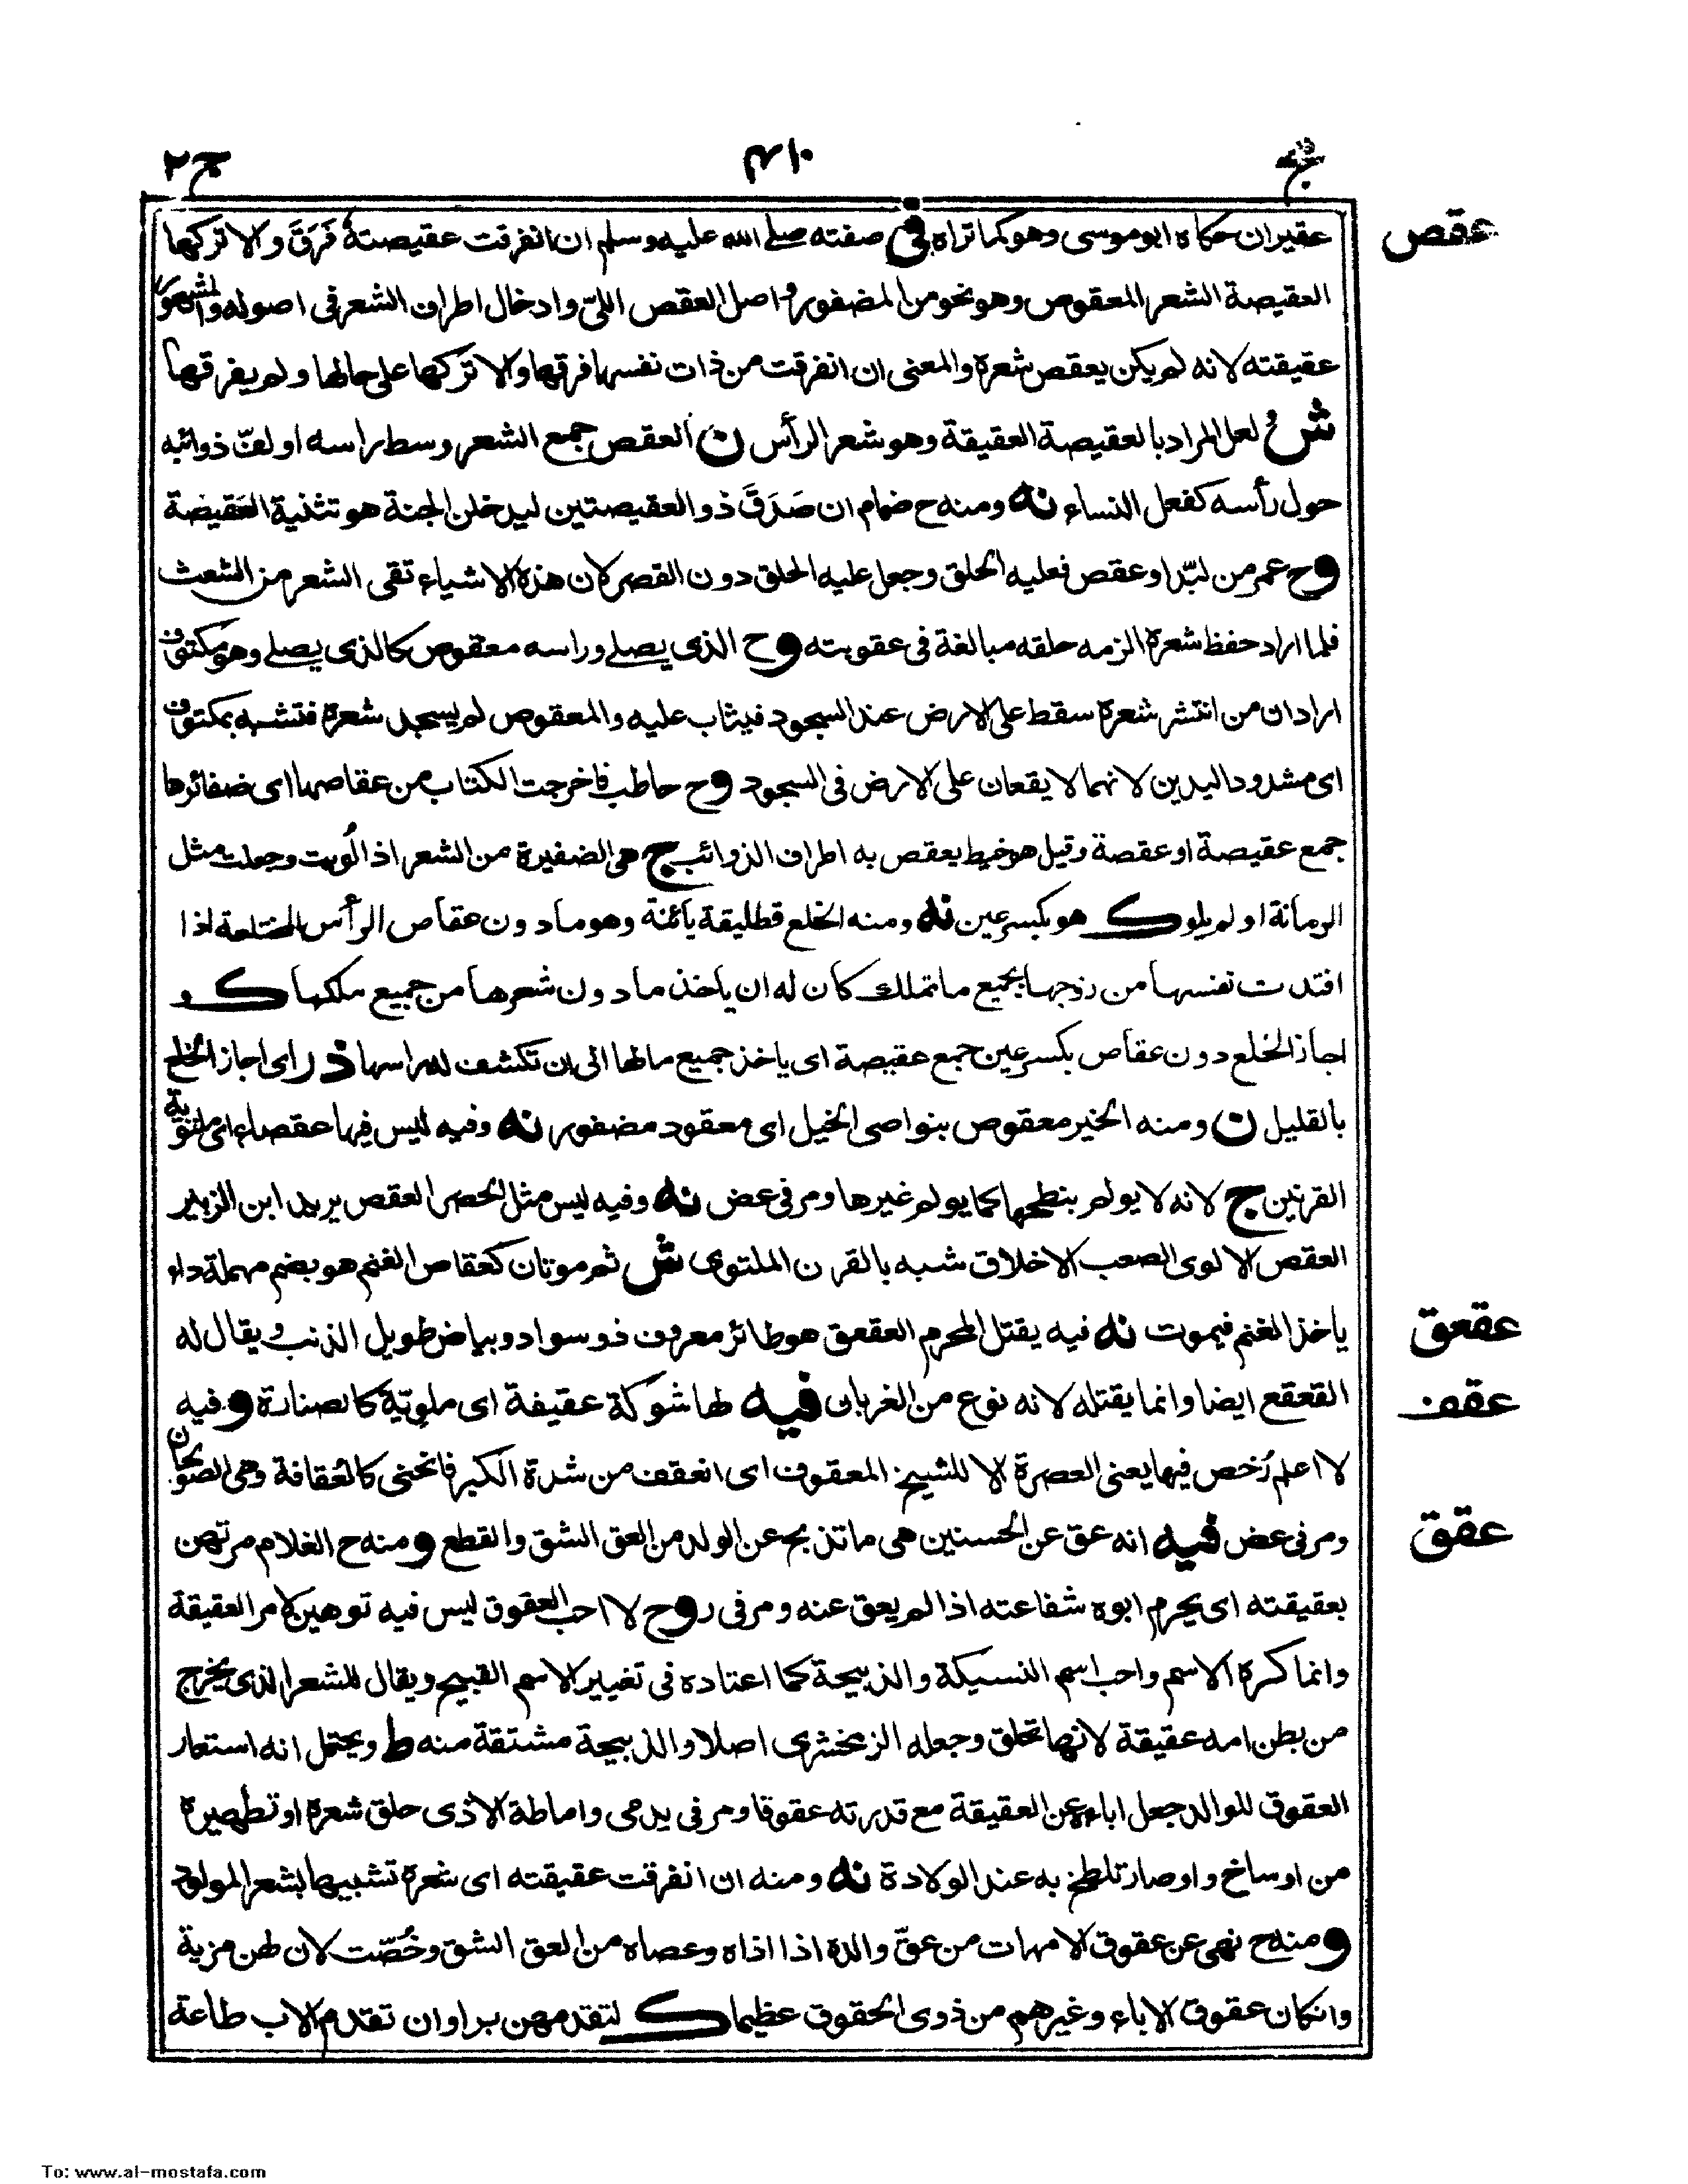 ج٢
عقص
عقيران حكاه ابو موسى وهو كما تراه في صفته صلے الله عليه وسلم ان انفرقت عقيصتهُ فَرَقَ والا تركها
العقيصة الشعر المعقوص وهو نحو من المضفور واصل العقص اللىّ وادخال اطراف الشعر فى اصوله والمشهور
عقيقته لانه لم يكن يعقص شعره والمعنى ان انفرقت من ذات نفسها فرقها والا تركها على حالها ولم يفرقها
ش لعل المراد بالعقيصة العقيقة وهو شعر الرأس ن العقص جمع الشعر وسط راسه او لفّ ذوائبه
حول رأسه كفعل النساء نه ومنه ح ضمام ان صَدَقَ ذو العقيصتين ليدخلن الجنة هو تثنية العَقيصة
وح عمر من لبّد او عقص فعليه الحلق وجعل عليه الحلق دون القصر لان هذه الاشياء تقى الشعر من الشعث
فلما اراد حفظ شعره الزمه حلقه مبالغة فى عقوبته وح الذى يصلے وراسه معقوص كالذى يصلے وهو مكتوف
اراد ان من انتشر شعره سقط على الارض عند السجود فيثاب عليه والمعقوص لم يسجد شعره فتشبه بمكتوف
اى مشدود اليدين لانهما لا يقعان على الارض فى السجود وح حاطب فاخرجت الكتاب من عقاصها اى ضفائرها
جمع عقيصة او عقصة وقيل هو خيط يعقص به اطراف الذوائب ج هى الضفيرة من الشعر اذا لُويت وجعلت مثل
الرمانة او لم يلو ك هو بكسر عين نه ومنه الخلع تطليقة بائنة وهو ما دون عقاص الرأس المختلعة اذا
افتدت نفسها من زوجها بجميع ما تملك كان له ان ياخذ ما دون شعرها من جميع ملكها ك و
اجاز الخلع دون عقاص بكسر عين جمع عقيصة اى ياخذ جميع مالها الى ان تكشف له راسها ذر اى اجاز الخلع
بالقليل ن ومنه الخير معقوص بنواصى الخيل اى معقود مضفور نه وفيه ليس فيها عقصاء اى ملتوية
القرنين ج لانه لا يولم بنطحها كما يولم غيرها ومر فى عض نه وفيه ليس مثل الحصر العقص يريد ابن الزبير
العقص الالوى الصعب الاخلاق شبه بالقرن الملتوى ش ثم موتان كعقاص الغنم هو بضم مهملة داء
عقعق
ياخذ الغنم فيموت نه فيه يقتل المحرم العقعق هو طائر معروف ذو سواد وبياض طويل الذنب ويقال له
عقف
القعقع ايضا وانما يقتله لانه نوع من الغربان فيه لها شوكة عقيفة اى ملويّة كالصنارة وفيه
لا اعلم رُخص فيها يعنى العصرة الا للشيخ المعقوف اى انعقف من شدة الكبر فانحنى كالعُقافة وهى الصولجان
عقق
ومر فى عض فيه انه عق عن الحسنين هى ما تذبح عن الولد من العق الشق والقطع ومنه ح الغلام مرتهن
بعقيقته اى يحرم ابوه شفاعته اذا لم يعق عنه ومر فى ر وح لا احب العقوق ليس فيه توهين لامر العقيقة
وانما كره الاسم واحب اسم النسيكة والذبيحة كما اعتاده فى تغيير الاسم القبيح ويقال للشعر الذى يخرج
من بطن امه عقيقة لانها تحلق وجعله الزمخشرى اصلا والذبيحة مشتقة منه ط ويحتمل انه استعار
العقوق للوالد جعل اباءه عن العقيقة مع قدرته عقوقا ومر فى يدمى واماطة الاذى حلق شعره او تطهيره
من اوساخ واوضار تلطخ به عند الولادة نه ومنه ان انفرقت عقيقته اى شعره تشبيها بشعر المولود
ومنه ح نهى عن عقوق الامهات من عقّ والده اذا اذاه وعصاه من العق الشق وخُصّت لان لهن مزية
وانكان عقوق الاباء وغيرهم من ذوى الحقوق عظيما ك لتقدمهن برا وان تقدم الاب طاعة
To: www.al-mostafa.com